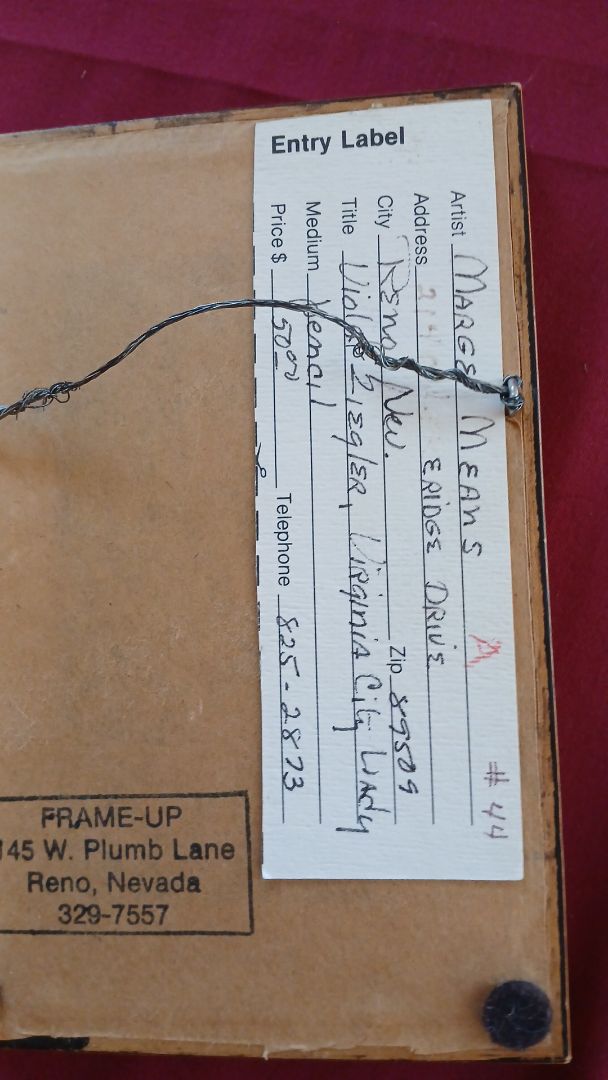 Entry Label
# 44
Artist MARGE MEANS A
Address ERIDGE DRIVE
City Reno, Nev. Zip 89509
Title Violet ZIEGLER, VIRGINIA City Lady
Medium Pencil
Price $ 50 00 Telephone 825-2873
FRAME-UP
145 W. Plumb Lane
Reno, Nevada
329-7557